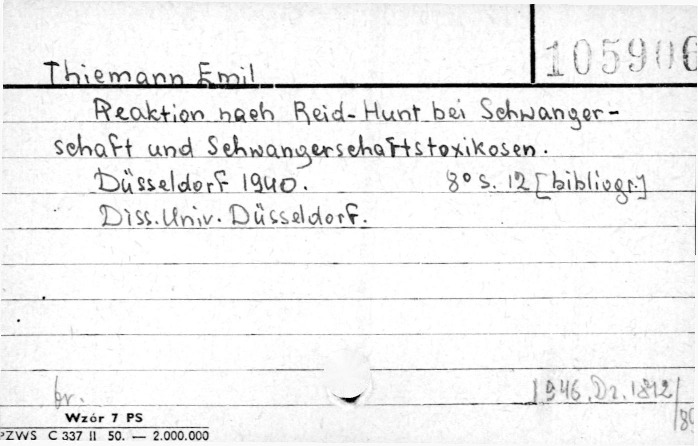 105906
Thiemann Emil
Reaktion nach Reid-Hunt bei Schwanger-
schaft und Schwangerschaftstoxikosen.
Düsseldorf 1940. 8° s. 12 [bibliogr.]
Diss. Univ. Düsseldorf.
br. 1946. Dz. 1812/
/80
Wzór 7 PS
PZWS C 337 II 50. — 2.000.000